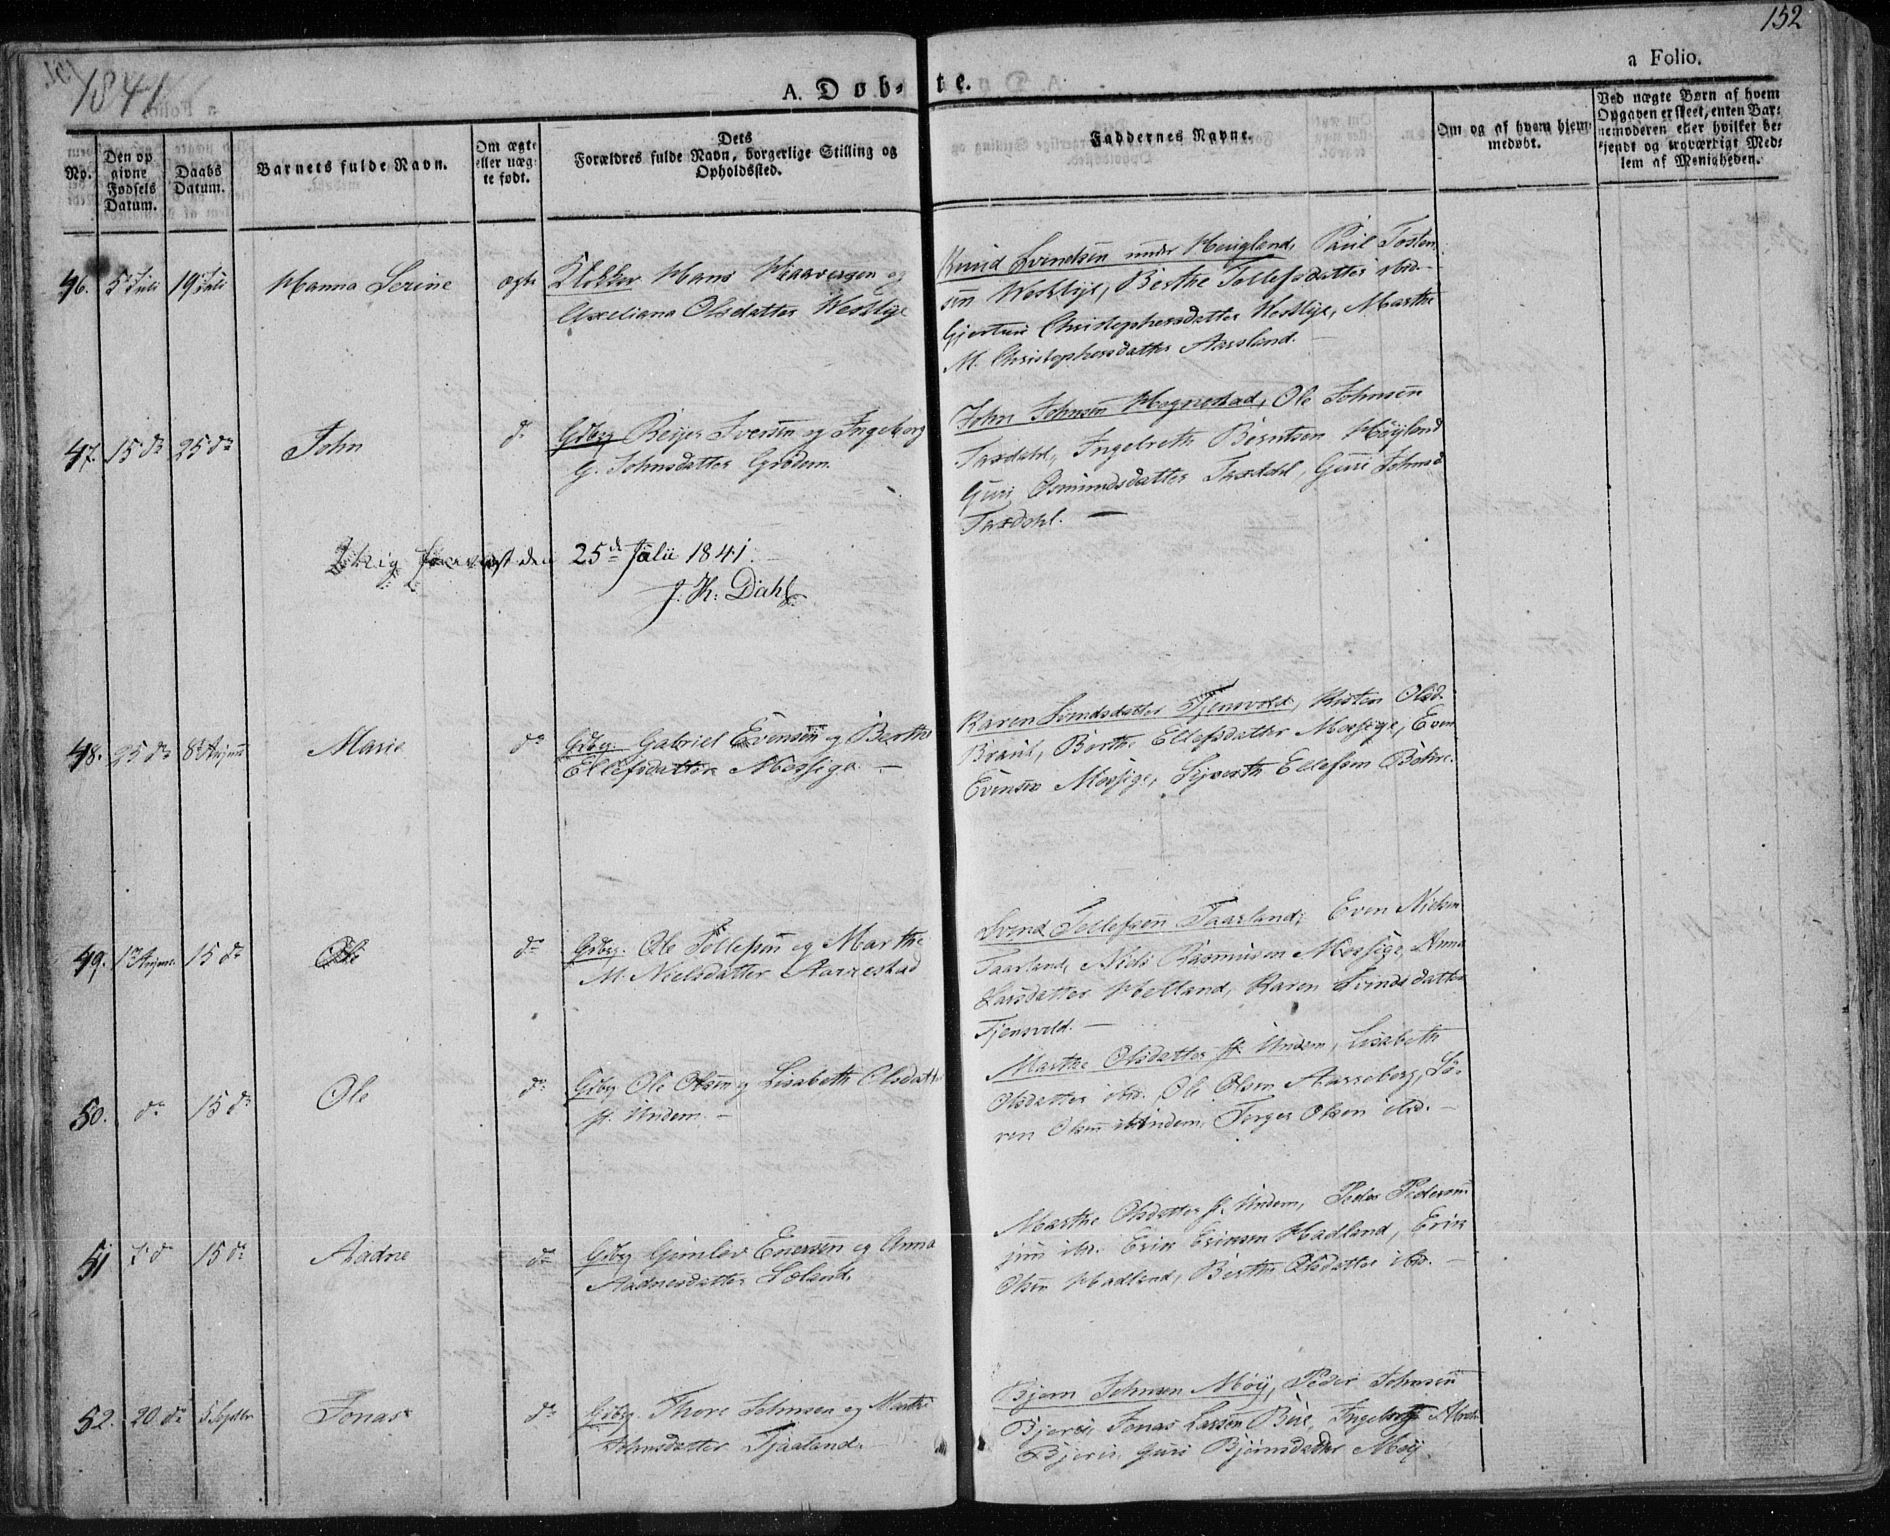 1841
152
a Folio.
A. Døb-te.
No.
Den op
givne
Fødsels
Datum.
Daabs
Datum.
Barnets fulde Navn.
Om ægte
eller uæg-
te født.
Dets
Forældres fulde Navn, borgerlige Stilling og
Opholdssted.
Faddernes Navne.
Om og af hvem hjem-
medøbt.
Ved uægte Børn af hvem
Opgaven er skeet, enten Bar-
nemoderen eller hvilket be-
kjendt og troværdigt Med-
lem af Menigheden.
46. 5te Juli 19 Juli Hanna Serine ægte
Klokker Hans Haaversen og
Axeliana Olsdatter Westlye
Knud Svendsen under Haugland, Paul Tosten-
sen Westlye, Berthe Tollefsdatter ibid.
Gjertrui Christophersdatter Westlye, Marthe
M. Christophersdatter Aarsland.
47. 15 do 25 do John do
Gdbrg Reijer Iversen og Ingeborg
G. Johnsdatter Grødem.
John Johnsen Hognestad, Ole Johnsen
Taxdahl, Ingebreth Berntsen Høyland
Guri Osmundsdatter Taxdahl, Guri Johnsd.
Taxdahl.
den 25de Julii 1841.
J. K. Dahl
48. 25 do 8de August Marie do
Gdbrg. Gabriel Evensen og Berthe
Ellefsdatter Mossige.
Karen Svendsdatter Tjensvold, Kisten Olsd.
Braut, Berthe Ellefsdatter Mossige, Even
Evensen Mossige, Sijverth Ellefsen Bøhre.
49. 1ste August 15 do Ole do
Gdbrg. Ole Tollefsen og Marthe
M. Nielsdatter Aarrestad
Svend Tollefsen Taarland, Even Nielsen
Taarland, Niels Rasmusen Mossige, Anna
Larsdatter Helland, Karen Svendsdatter
Tjensvold.
50. do 15 do Ole do
Gdbrg Ole Olsen og Lisabeth Olsdatter
st. Undem.
Marthe Olsdatter st. Undem, Lisabeth
Olsdatter ibd. Ole Olsen Aarreberg, Sø-
ren Olsen Undem, Torger Olsen ibd.
51 7de do 15 do Aadne do
Gdbrg Gunlev Enersen og Anna
Aadnesdatter Loland.
Marthe Olsdatter st. Undem, Peder Pedersen
jun ibd. Erik Eriksen Hadland, Erik
Olsen Hadland, Berthe Olsdatter ibd.
52. 20 do 5 Septbr Jonas do
Gdbrg. Thore Johnsen og Marthe
Johnsdatter Tjaaland.
Bjørn Johnsen Møij, Peder Johnsen
Bjerei, Jonas Larsen Bøe, Ingeborg
Bjerei, Guri Bjørnsdatter Møij.